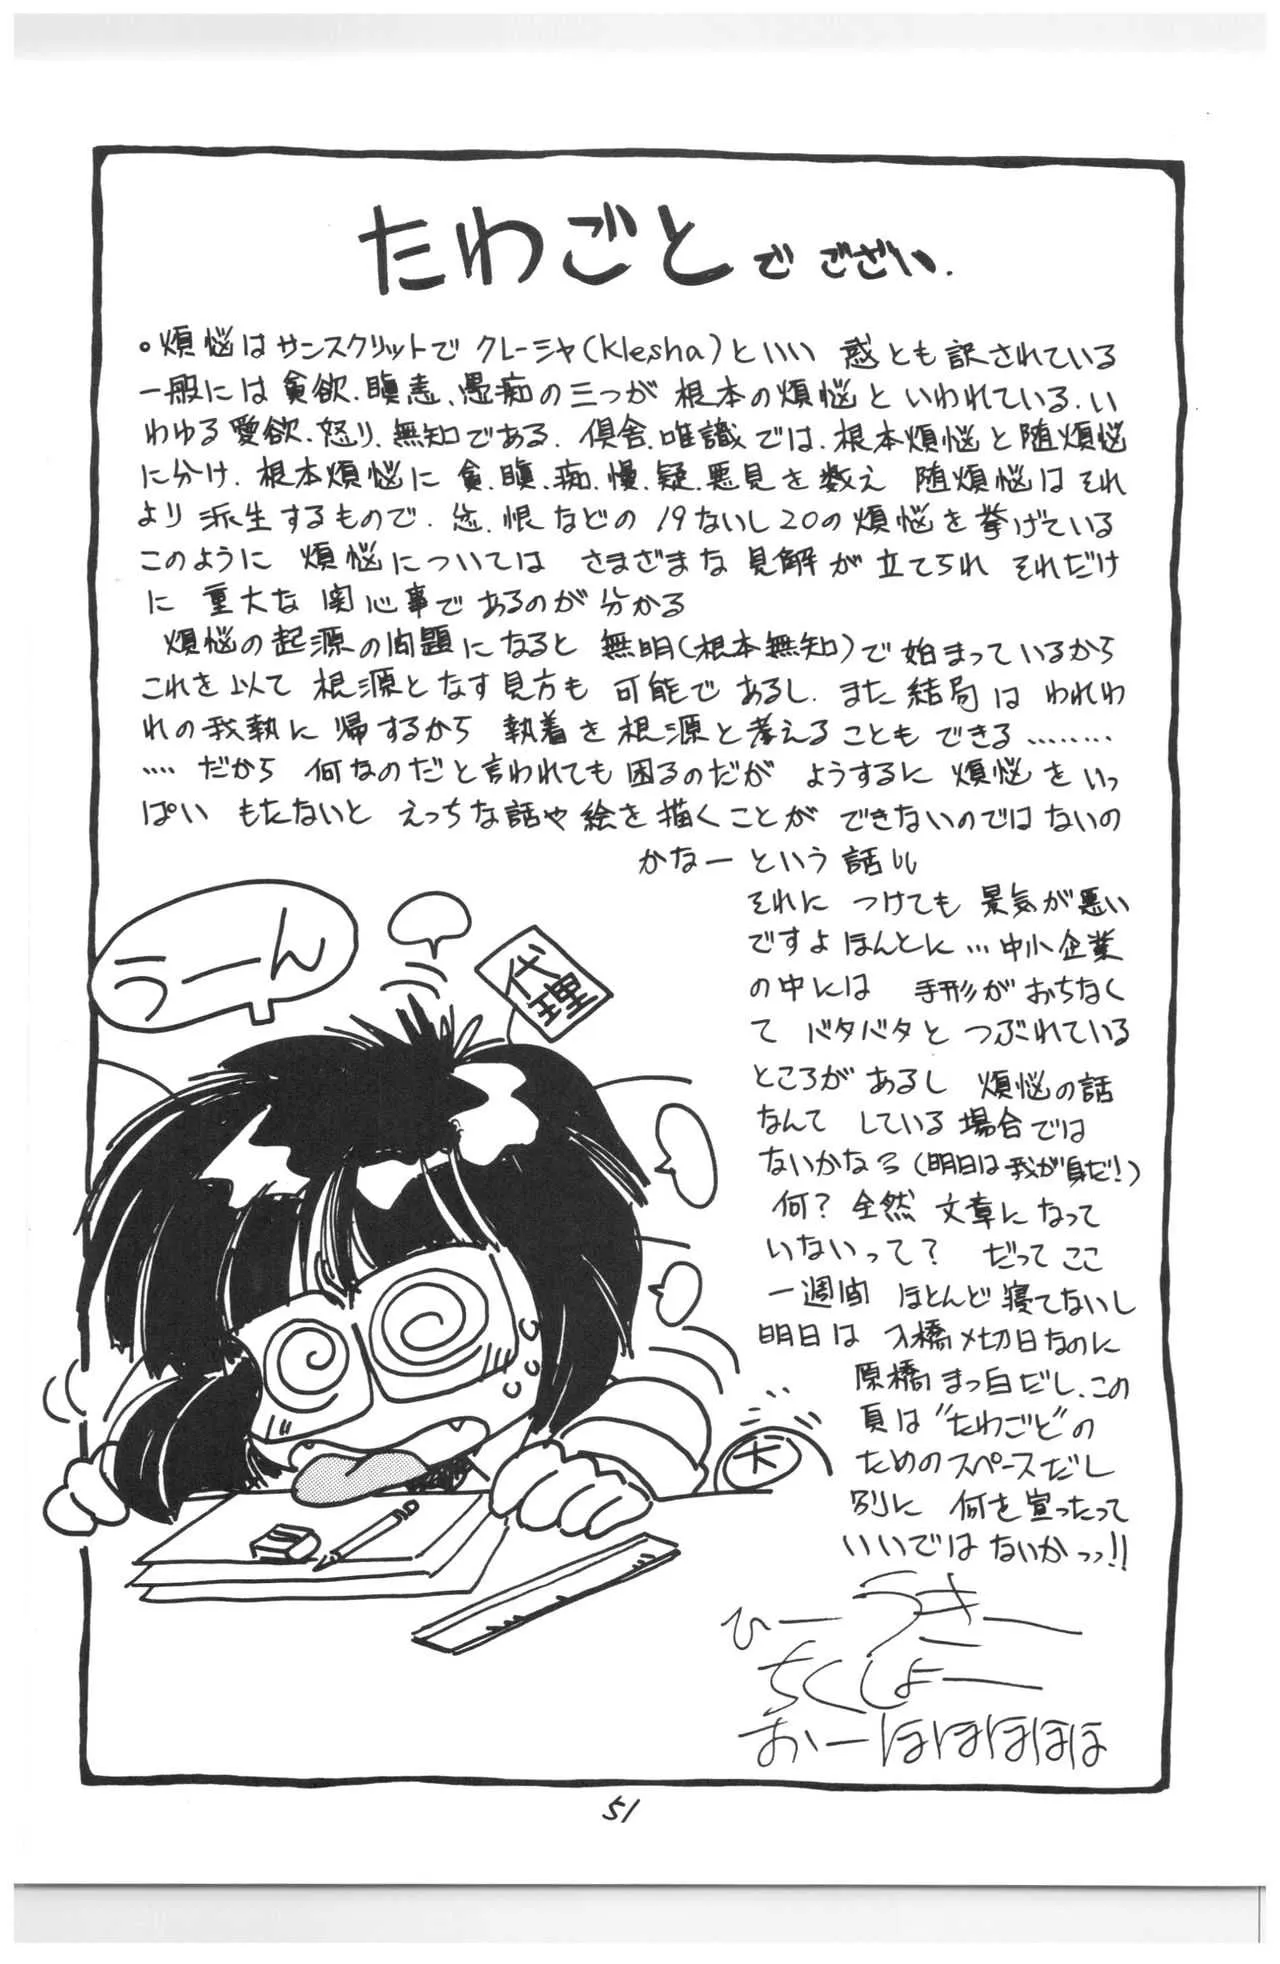 たわごとでござい.
。煩悩はサンスクリットでクレーシャ(klesha)といい 惑とも訳されている
一般には貪欲.瞋恚、愚痴の三つが根本の煩悩といわれている.い
わゆる愛欲.怒り.無知である.倶舎.唯識では.根本煩悩と随煩悩
に分け.根本煩悩に貪.瞋.痴.慢.疑.悪見を数え 随煩悩はそれ
より派生するもので.忿.恨などの19ないし20の煩悩を挙げている
このように 煩悩については さまざまな見解が立てられ それだけ
に 重大な関心事であるのが分かる
煩悩の起源の問題になると 無明(根本無知)で始まっているから
これを以て 根源となす見方も 可能であるし.また結局は われわ
れの我執に 帰するから 執着を根源と考えることもできる………
‥‥だから 何なのだと言われても困るのだが ようするに 煩悩をいっ
ぱい もたないと えっちな話や絵を描くことが できないのではないの
かなーという話
それに つけても 景気が悪い
ですよほんとに…中小企業
の中には 手形がおちなく
て バタバタと つぶれている
ところがあるし 煩悩の話
なんて している場合では
ないかなろ(明日は我が身だ!)
何?全然 文章になって
いないって? だってここ
一週間 ほとんど寝てないし
明日は 入橋〆切日なのに
原橋まっ白だし.この
頁は"たわごと"の
ためのスペースだし
別に 何を宣ったって
いいではないかっっ!!
ひーうきー
ちくしょー
おーほほほほほ
うーん
代理
大
51